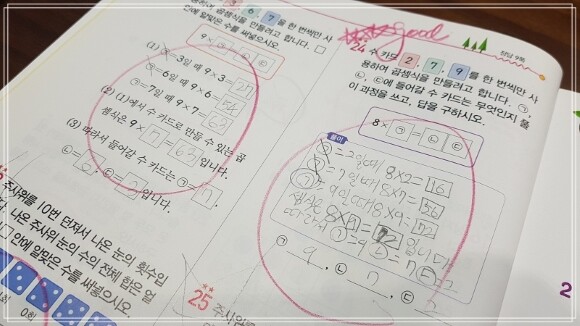 3, 6, 7 을 한 번씩만 사
용하여 곱셈식을 만들려고 합니다. □
안에 알맞은 수를 써넣으시오.
9×㉠=㉡㉢
(1) ㉠=3일 때 9×3=27
㉠=6일 때 9×6=54
㉠=7일 때 9×7=63
(2) (1)에서 수 카드로 만들 수 있는 곱
셈식은 9×7=63입니다.
(3) 따라서 들어갈 수 카드는 ㉠=7,
㉡=6, ㉢=3입니다.
주사위를 10번 던져서 나온 눈의 횟수입
나온 주사위 눈의 수의 전체 합은 얼
□ 안에 알맞은 수를 써넣으시오.
0회
good
정답 9쪽
24 수 카드 2, 7, 9 를 한 번씩만 사
용하여 곱셈식을 만들려고 합니다. ㉠,
㉡, ㉢에 들어갈 수 카드는 무엇인지 풀
이 과정을 쓰고, 답을 구하시오.
8×㉠=㉡㉢
풀이
㉠=2일때 8×2=16
㉠=7일때 8×7=56
㉠=9일때 8×9=72
셈식은 8×9=72입니다
따라서 ㉠=9 ㉡=7 ㉢=2
㉠ 9, ㉡ 7, ㉢ 2
25 주사위를
2